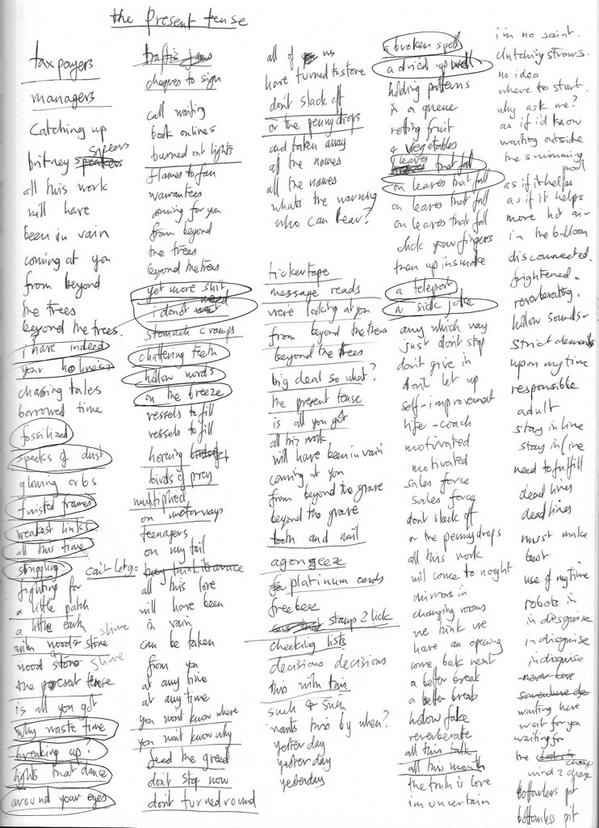 the present tense
taxpayers
managers
catching up
britney spears
all this work
will have
been in vain
coming at you
from beyond
the trees
beyond the trees.
i have indeed
your
chasing tales
borrowed time
fossilized
specks of dust
glowing orbs
twisted frames
weakest links
all this time
struggling
can't let go
fighting for
a little patch
a little earth
with wood & stone shine
wood stone shine
the present tense
is all you got
why waste time
breaking up?
lights that dance
around your eyes
traffic jams
cheques to sign
call waiting
book onlines
burned out lights
flames to fan
warrantees
coming for you
from beyond
the trees
beyond the trees
yet more shit
i dont need
stomach cramps
chattering teeth
hollow words
on the breeze
vessels to fill
vessels to fill
birds of prey
multiplied
on motorways
teenagers
on my tail
all this love
will have been
in vain
can be taken
from you
at any time
at any time
you wont know where
you wont know why
feed the greed
dont stop now
dont turn round
all of us
have turned to stone
dont slack off
or the penny drops
and taken away
all the nowes
all the nowes
whats the warning
who can hear?
tickertape
message reads
were looking at you
from beyond the trees
beyond the trees
big deal so what?
the present tense
is all you got
all this work
will have been in vain
coming at you
from beyond the grave
beyond the grave
tooth and nail
platinum cards
freebase
stamps 2 lick
checking lists
decisions decisions
this with this
such & such
wants this by when?
yesterday
yesterday
yesterday
a broken spell
a dried up well
holding patterns
in a queue
rotting fruit
& vegetables
leaves that fall
on leaves that fall
on leaves that fall
on leaves that fall
click your fingers
turn up in smoke
a teleport
a sick joke
any which way
just dont stop
dont give in
dont let up
self-improvement
life-coach
motivated
motivated
sales force
sales force
dont slack off
or the penny drops
all this work
will come to nought
mirrors in
changing rooms
we think we
have an opening
come back next
a better break
a better break
hollow fake
reverberate
all this talk
all this
the truth is love
im uncertain
i'm no saint.
clutching straws.
no idea
where to start.
why ask me?
as if i'd know
waiting outside
the swimming pool
as if it helps
as if it helps
more hot air
in the balloon
disconnected.
frightened.
reverberating.
hollow sounds.
strict demands
upon my time
responsible
adult
stay in line
stay in line
need to fulfill
dead lines
dead lines
must make
best
use of my time
robots in
in disguise
in disguise
in disguise
never here
somewhere else
waiting here
wait for you
waiting for
the
bottomless pit
bottomless pit